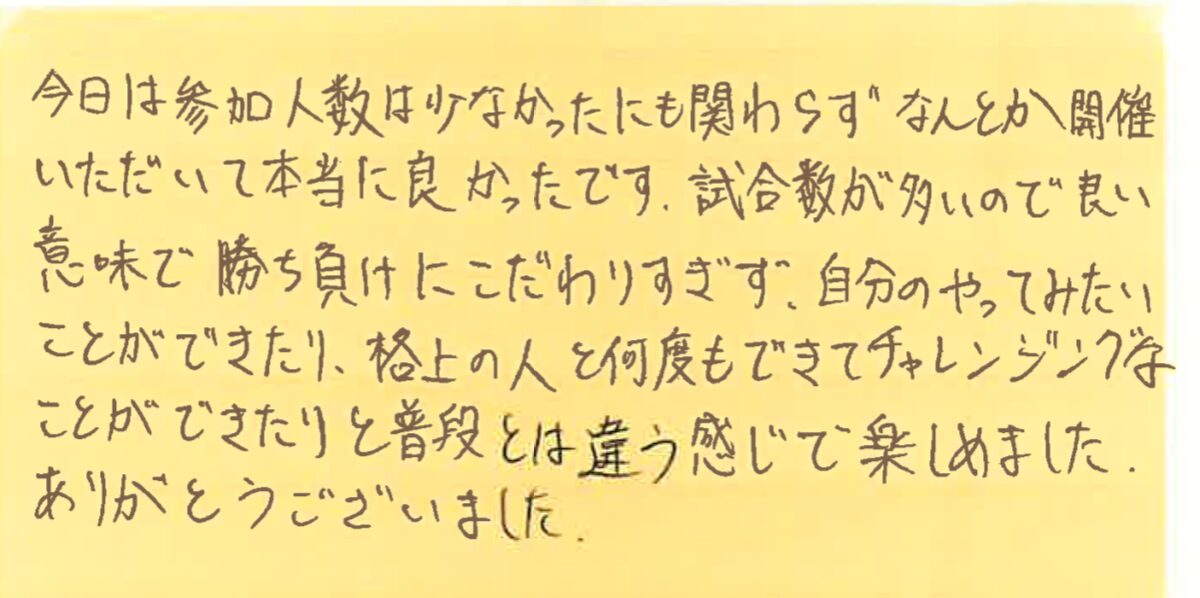 今日は参加人数は少なかったにも関わらずなんとか開催
いただいて本当に良かったです.試合数が多いので良い
意味で勝ち負けにこだわりすぎず、自分のやってみたい
ことができたり、格上の人と何度もできてチャレンジングな
ことができたりと普段とは違う感じで楽しめました.
ありがとうございました.